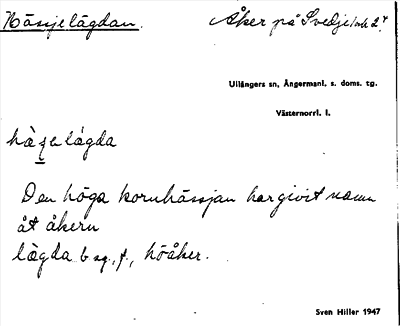 Hässjelägdan. Åker på Svedje
Ullångers sn, Ångermanl. s. doms. tg.
Västernorrl. l.
lägda
Den höga kornhässjan har givit namn
åt åkern
lägda b sg., f., höåker.
Sven Hiller 1947